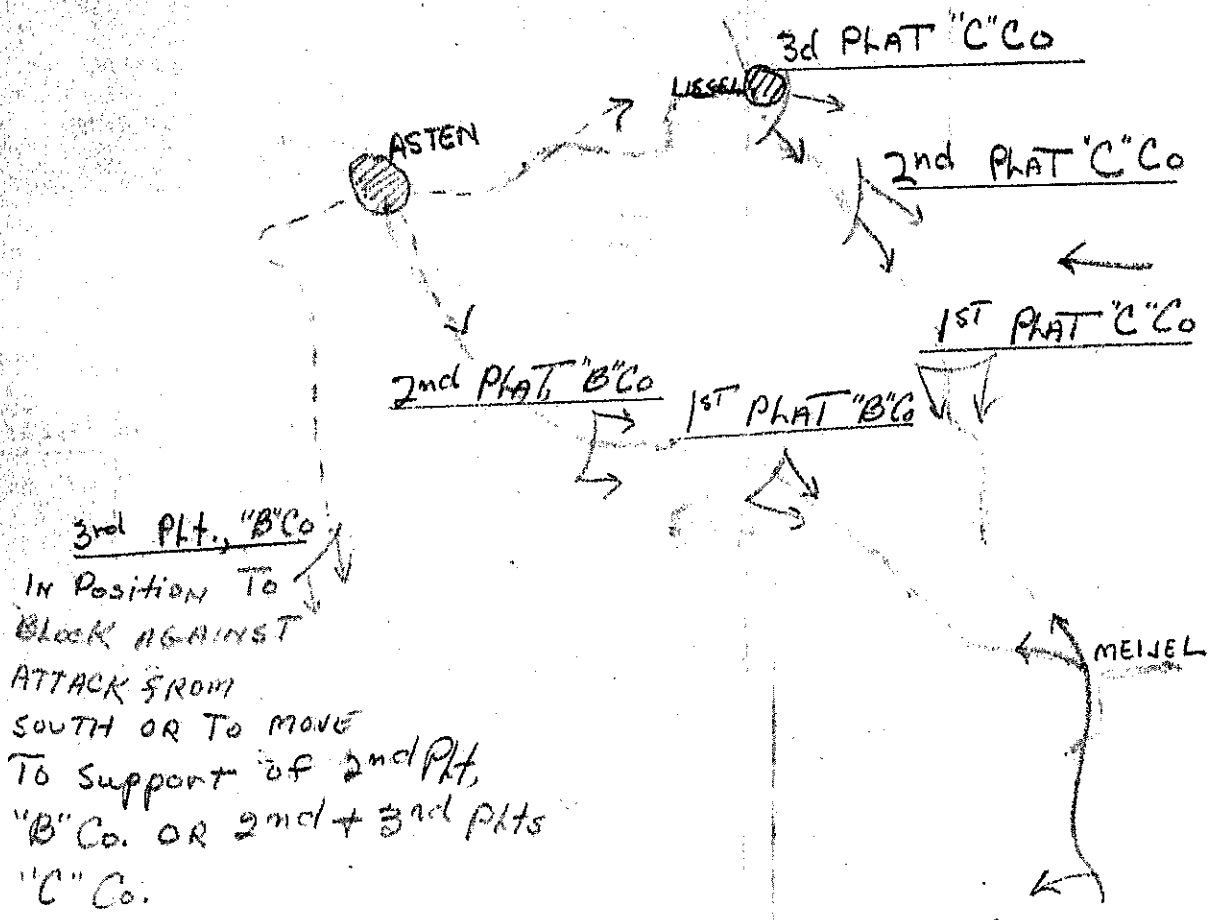 3d PLAT "C" Co
LISSEL
ASTEN
2nd PLAT "C" Co
1ST PLAT "C" Co
2nd PLAT, "B" Co
1ST PLAT "B" Co
3rd Plt., "B" Co
IN Position To
BLOCK AGAINST
ATTACK FROM
SOUTH OR To MOVE
To Support of 2nd Plt,
"B" Co. OR 2nd + 3rd Plts
"C" Co.
MEIJEL